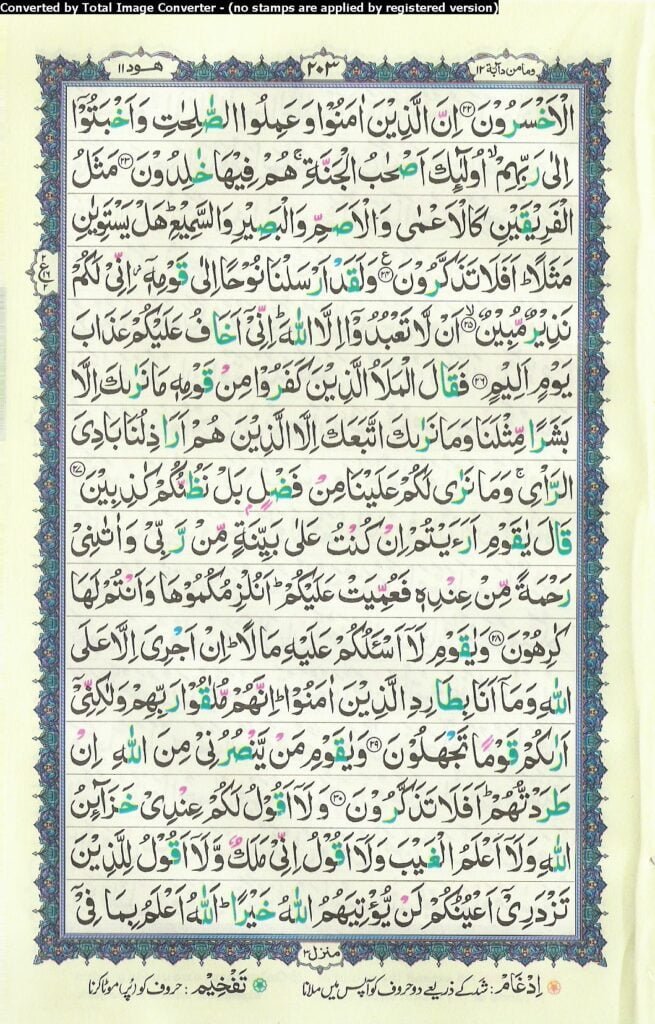 Converted by Total Image Converter - (no stamps are applied by registered version)
وما من دآبة ١٢
٢٠٣
هود ١١
الْاَخْسَرُوْنَ ﴿٢٢﴾ اِنَّ الَّذِيْنَ اٰمَنُوْا وَعَمِلُوا الصّٰلِحٰتِ وَاَخْبَتُوْۤا
اِلٰى رَبِّهِمْ ۙ اُولٰٓئِكَ اَصْحٰبُ الْجَنَّةِ ۚ هُمْ فِيْهَا خٰلِدُوْنَ ﴿٢٣﴾ مَثَلُ
الْفَرِيْقَيْنِ كَالْاَعْمٰى وَالْاَصَمِّ وَالْبَصِيْرِ وَالسَّمِيْعِ ؕ هَلْ يَسْتَوِيٰنِ
مَثَلًا ؕ اَفَلَا تَذَكَّرُوْنَ ﴿٢٤﴾ ع وَلَقَدْ اَرْسَلْنَا نُوْحًا اِلٰى قَوْمِهٖۤ ۫ اِنِّىْ لَكُمْ
نَذِيْرٌ مُّبِيْنٌ ۙ﴿٢٥﴾ اَنْ لَّا تَعْبُدُوْۤا اِلَّا اللّٰهَ ؕ اِنِّىْۤ اَخَافُ عَلَيْكُمْ عَذَابَ
يَوْمٍ اَلِيْمٍ ﴿٢٦﴾ فَقَالَ الْمَلَاُ الَّذِيْنَ كَفَرُوْا مِنْ قَوْمِهٖ مَا نَرٰىكَ اِلَّا
بَشَرًا مِّثْلَنَا وَمَا نَرٰىكَ اتَّبَعَكَ اِلَّا الَّذِيْنَ هُمْ اَرَاذِلُنَا بَادِىَ
الرَّاْىِ ۚ وَمَا نَرٰى لَكُمْ عَلَيْنَا مِنْ فَضْلٍۭ بَلْ نَظُنُّكُمْ كٰذِبِيْنَ ﴿٢٧﴾
قَالَ يٰقَوْمِ اَرَءَيْتُمْ اِنْ كُنْتُ عَلٰى بَيِّنَةٍ مِّنْ رَّبِّىْ وَاٰتٰىنِىْ
رَحْمَةً مِّنْ عِنْدِهٖ فَعُمِّيَتْ عَلَيْكُمْ ؕ اَنُلْزِمُكُمُوْهَا وَاَنْتُمْ لَهَا
كٰرِهُوْنَ ﴿٢٨﴾ وَيٰقَوْمِ لَاۤ اَسْـَٔلُكُمْ عَلَيْهِ مَالًا ؕ اِنْ اَجْرِىَ اِلَّا عَلَى
اللّٰهِ وَمَاۤ اَنَا بِطَارِدِ الَّذِيْنَ اٰمَنُوْا ؕ اِنَّهُمْ مُّلٰقُوْا رَبِّهِمْ وَلٰكِنِّىْۤ
اَرٰىكُمْ قَوْمًا تَجْهَلُوْنَ ﴿٢٩﴾ وَيٰقَوْمِ مَنْ يَّنْصُرُنِىْ مِنَ اللّٰهِ اِنْ
طَرَدْتُّهُمْ ؕ اَفَلَا تَذَكَّرُوْنَ ﴿٣٠﴾ وَلَاۤ اَقُوْلُ لَكُمْ عِنْدِىْ خَزَآئِنُ
اللّٰهِ وَلَاۤ اَعْلَمُ الْغَيْبَ وَلَاۤ اَقُوْلُ اِنِّىْ مَلَكٌ وَّلَاۤ اَقُوْلُ لِلَّذِيْنَ
تَزْدَرِىْۤ اَعْيُنُكُمْ لَنْ يُّؤْتِيَهُمُ اللّٰهُ خَيْرًا ؕ اَللّٰهُ اَعْلَمُ بِمَا فِىْۤ
منزل ٣
اِدْغَام : شد کے ذریعے دو حروف کو آپس میں ملانا
تَفْخِيْم : حروف کو (پُر) موٹا کرنا